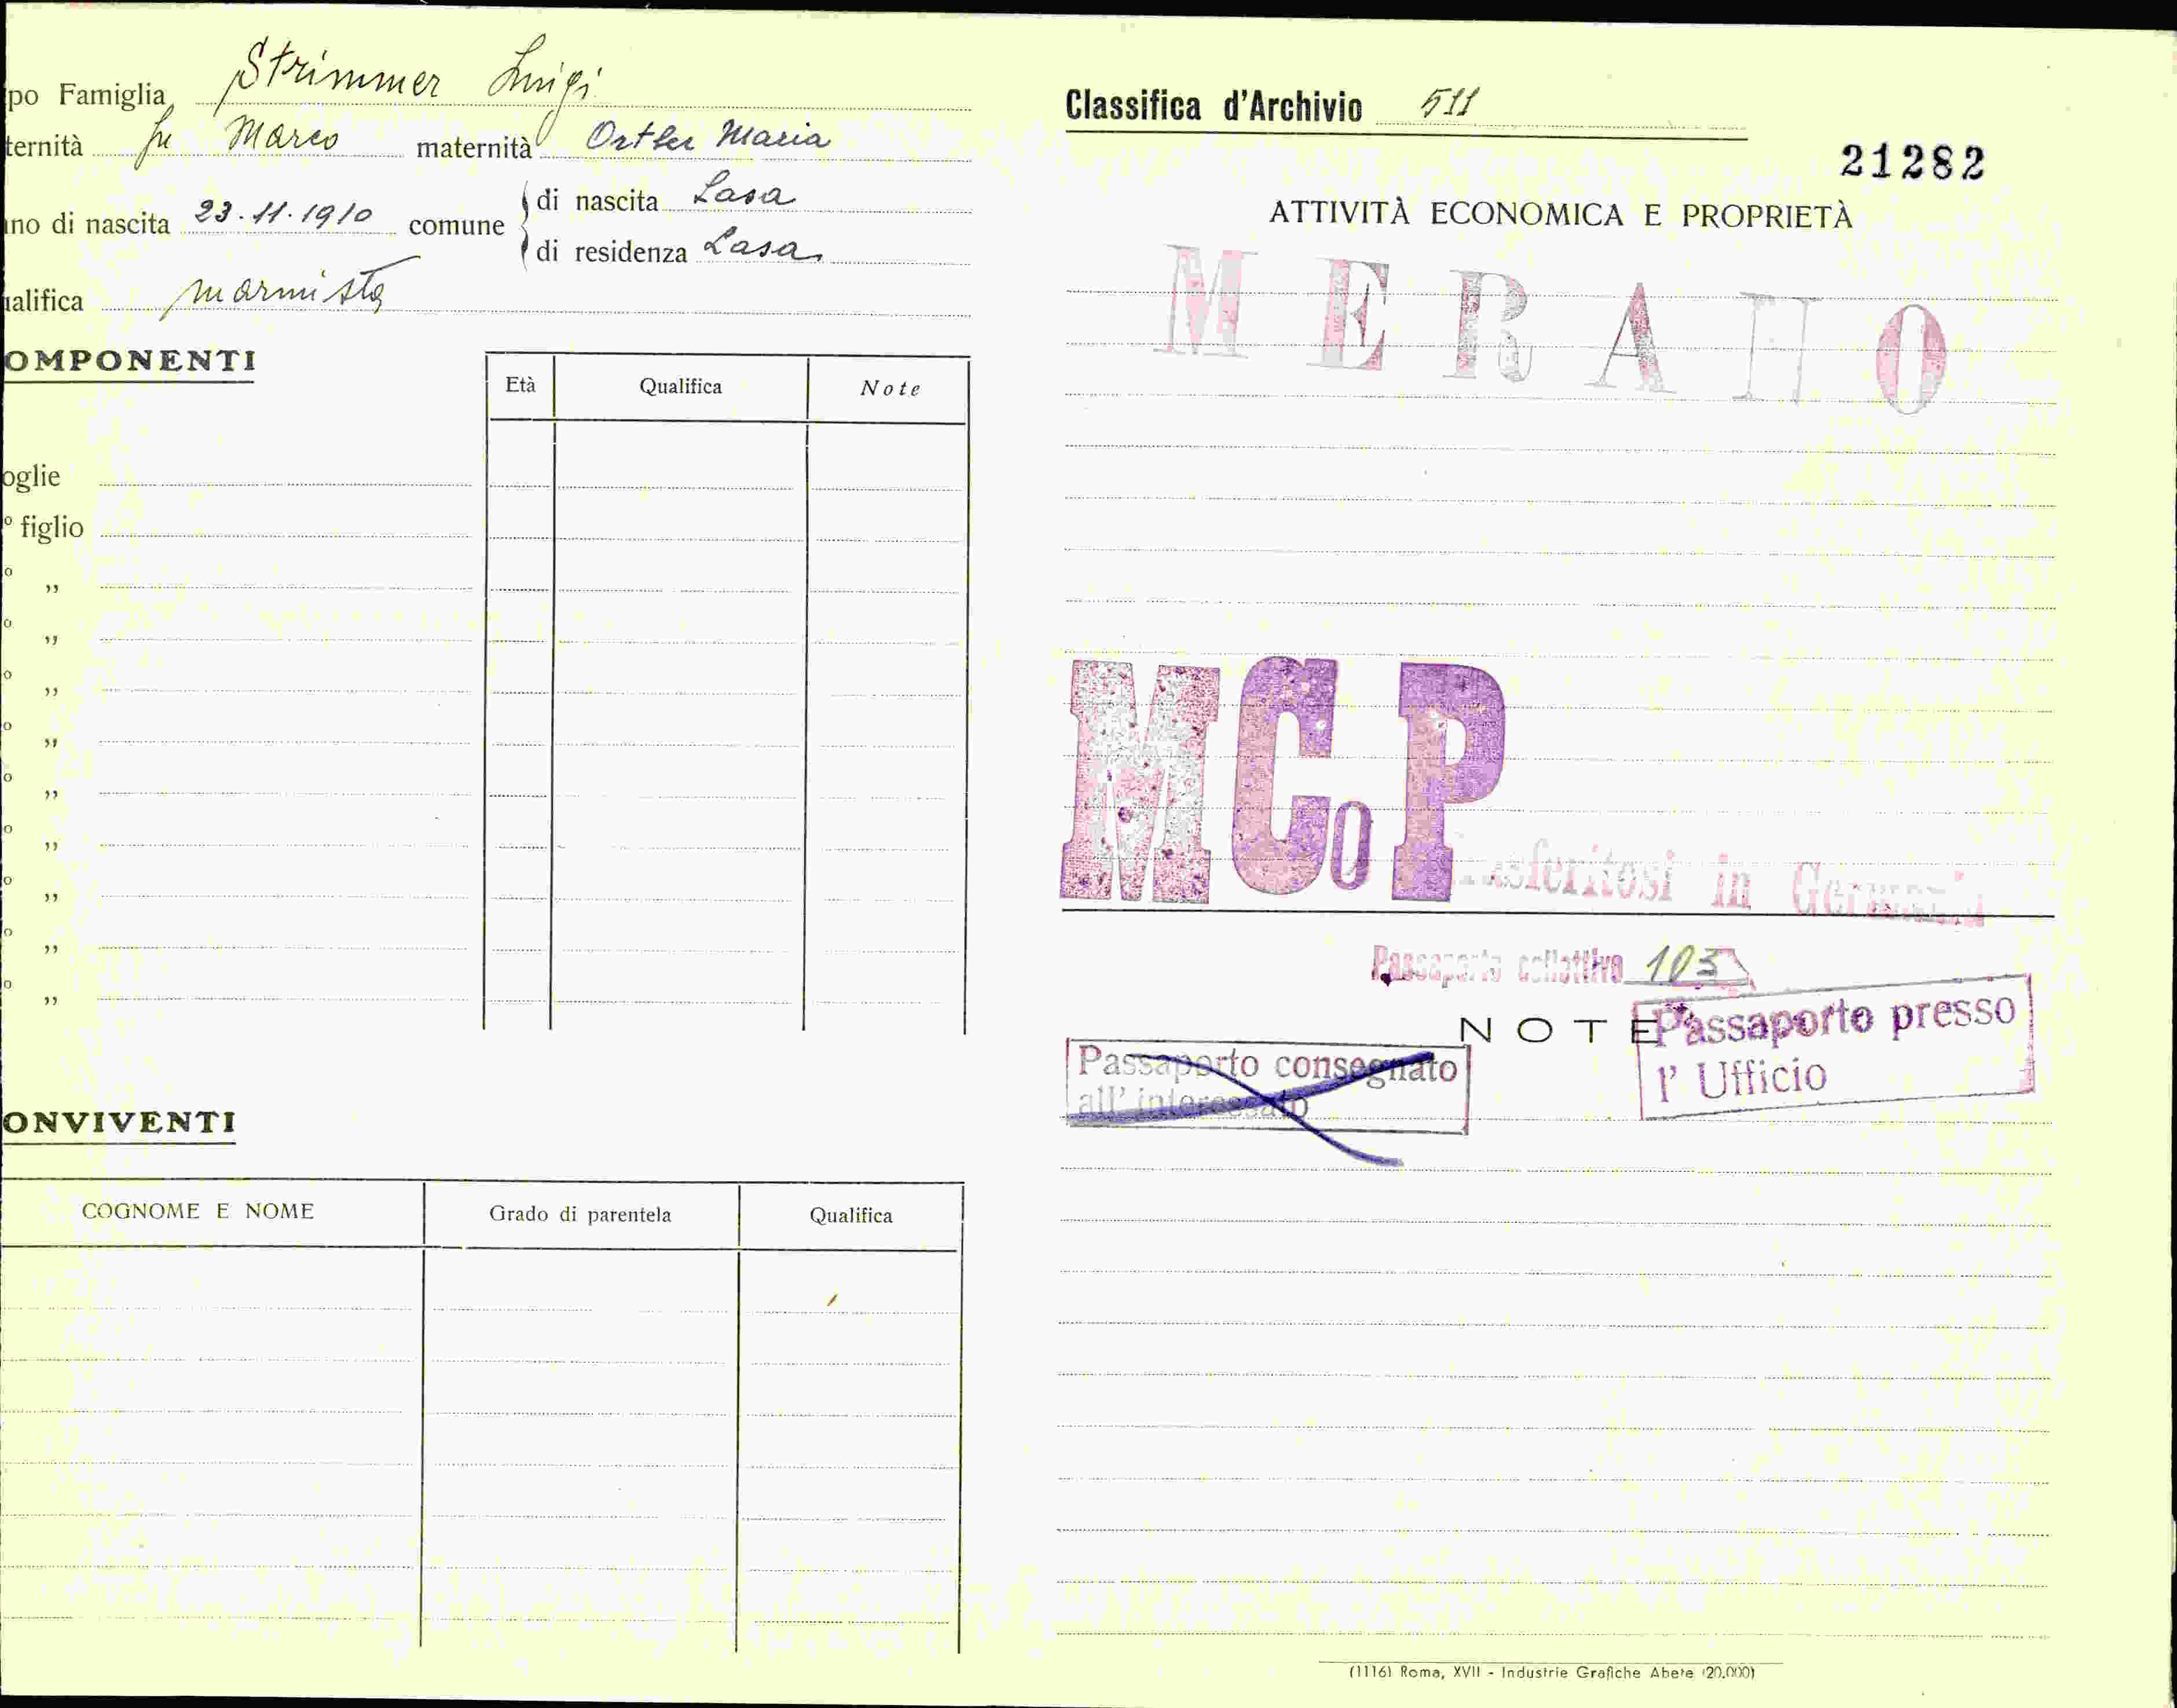 po Famiglia Strimmer Luigi
ternità fu Marco maternità Ortler Maria
ano di nascita 23.11.1910 comune di nascita Lasa
di residenza Lasa
ualifica marmista
OMPONENTI
Età Qualifica Note
oglie
° figlio
° „
° „
° „
° „
° „
° „
° „
° „
° „
ONVIVENTI
COGNOME E NOME Grado di parentela Qualifica
Classifica d'Archivio 511
21282
ATTIVITÀ ECONOMICA E PROPRIETÀ
MERANO
MCoP
rasferitosi in Germania
Passaporto collettivo 103
NOTE
Passaporto presso
l' Ufficio
Passaporto consegnato
all' interessato
(1116) Roma, XVII - Industrie Grafiche Abete (20.000)